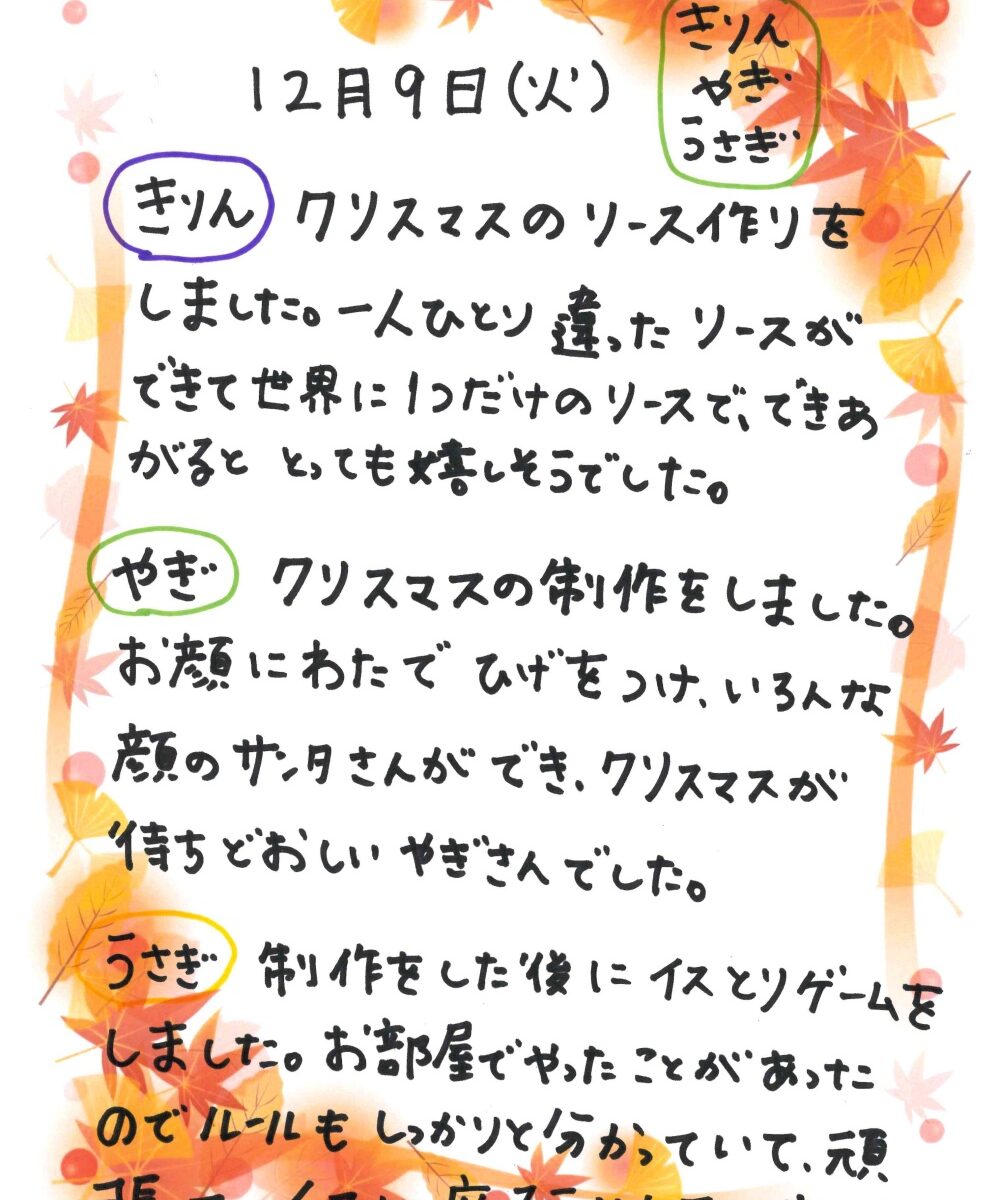 12月9日(火)
きりん
やぎ
うさぎ
きりん クリスマスのリース作りを
しました。一人ひとり違ったリースが
できて世界に1つだけのリースで、できあ
がると とっても嬉しそうでした。
やぎ クリスマスの制作をしました。
お顔にわたで ひげをつけ、いろんな
顔のサンタさんができ、クリスマスが
待ちどおしい やぎさんでした。
うさぎ 制作をした後に イスとりゲームを
しました。お部屋でやったことがあった
のでルールもしっかりと分かっていて、頑
張って